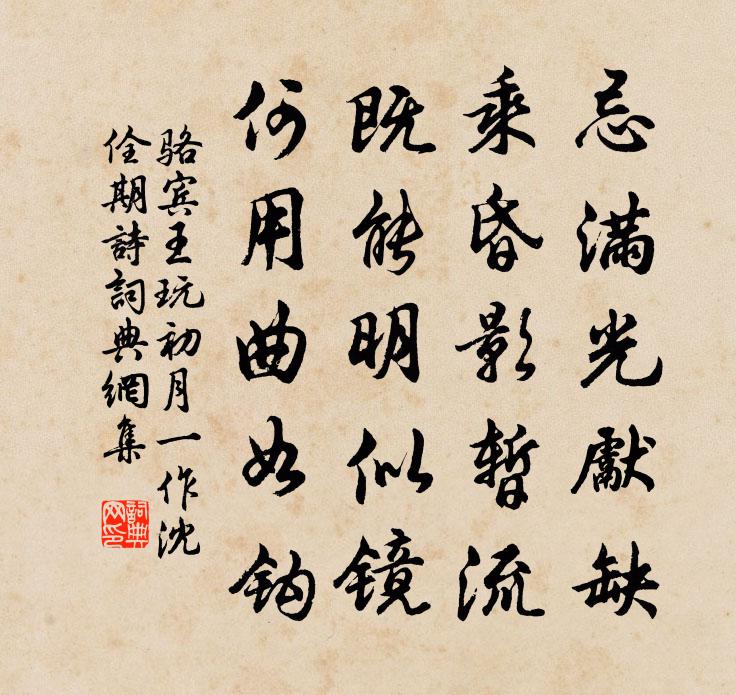 忌滿光獻缺
乘昏影暫流
既能明似镜
何用曲如钩
骆宾王玩初月一作沈
佺期詩詞典網集
詞典
网印